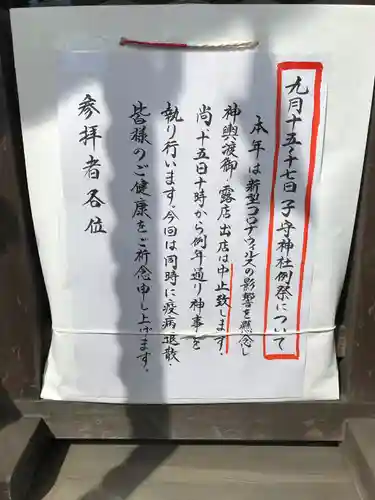 九月十五〜七日子守神社例祭について
本年は新型コロナウィルスの影響を懸念し
神輿渡御・露店出店は中止致します。
尚、十五日十時から例年通り神事を
執り行います。今回は同時に疫病退散・
皆様のご健康をご祈念申し上げます。
参拝者各位